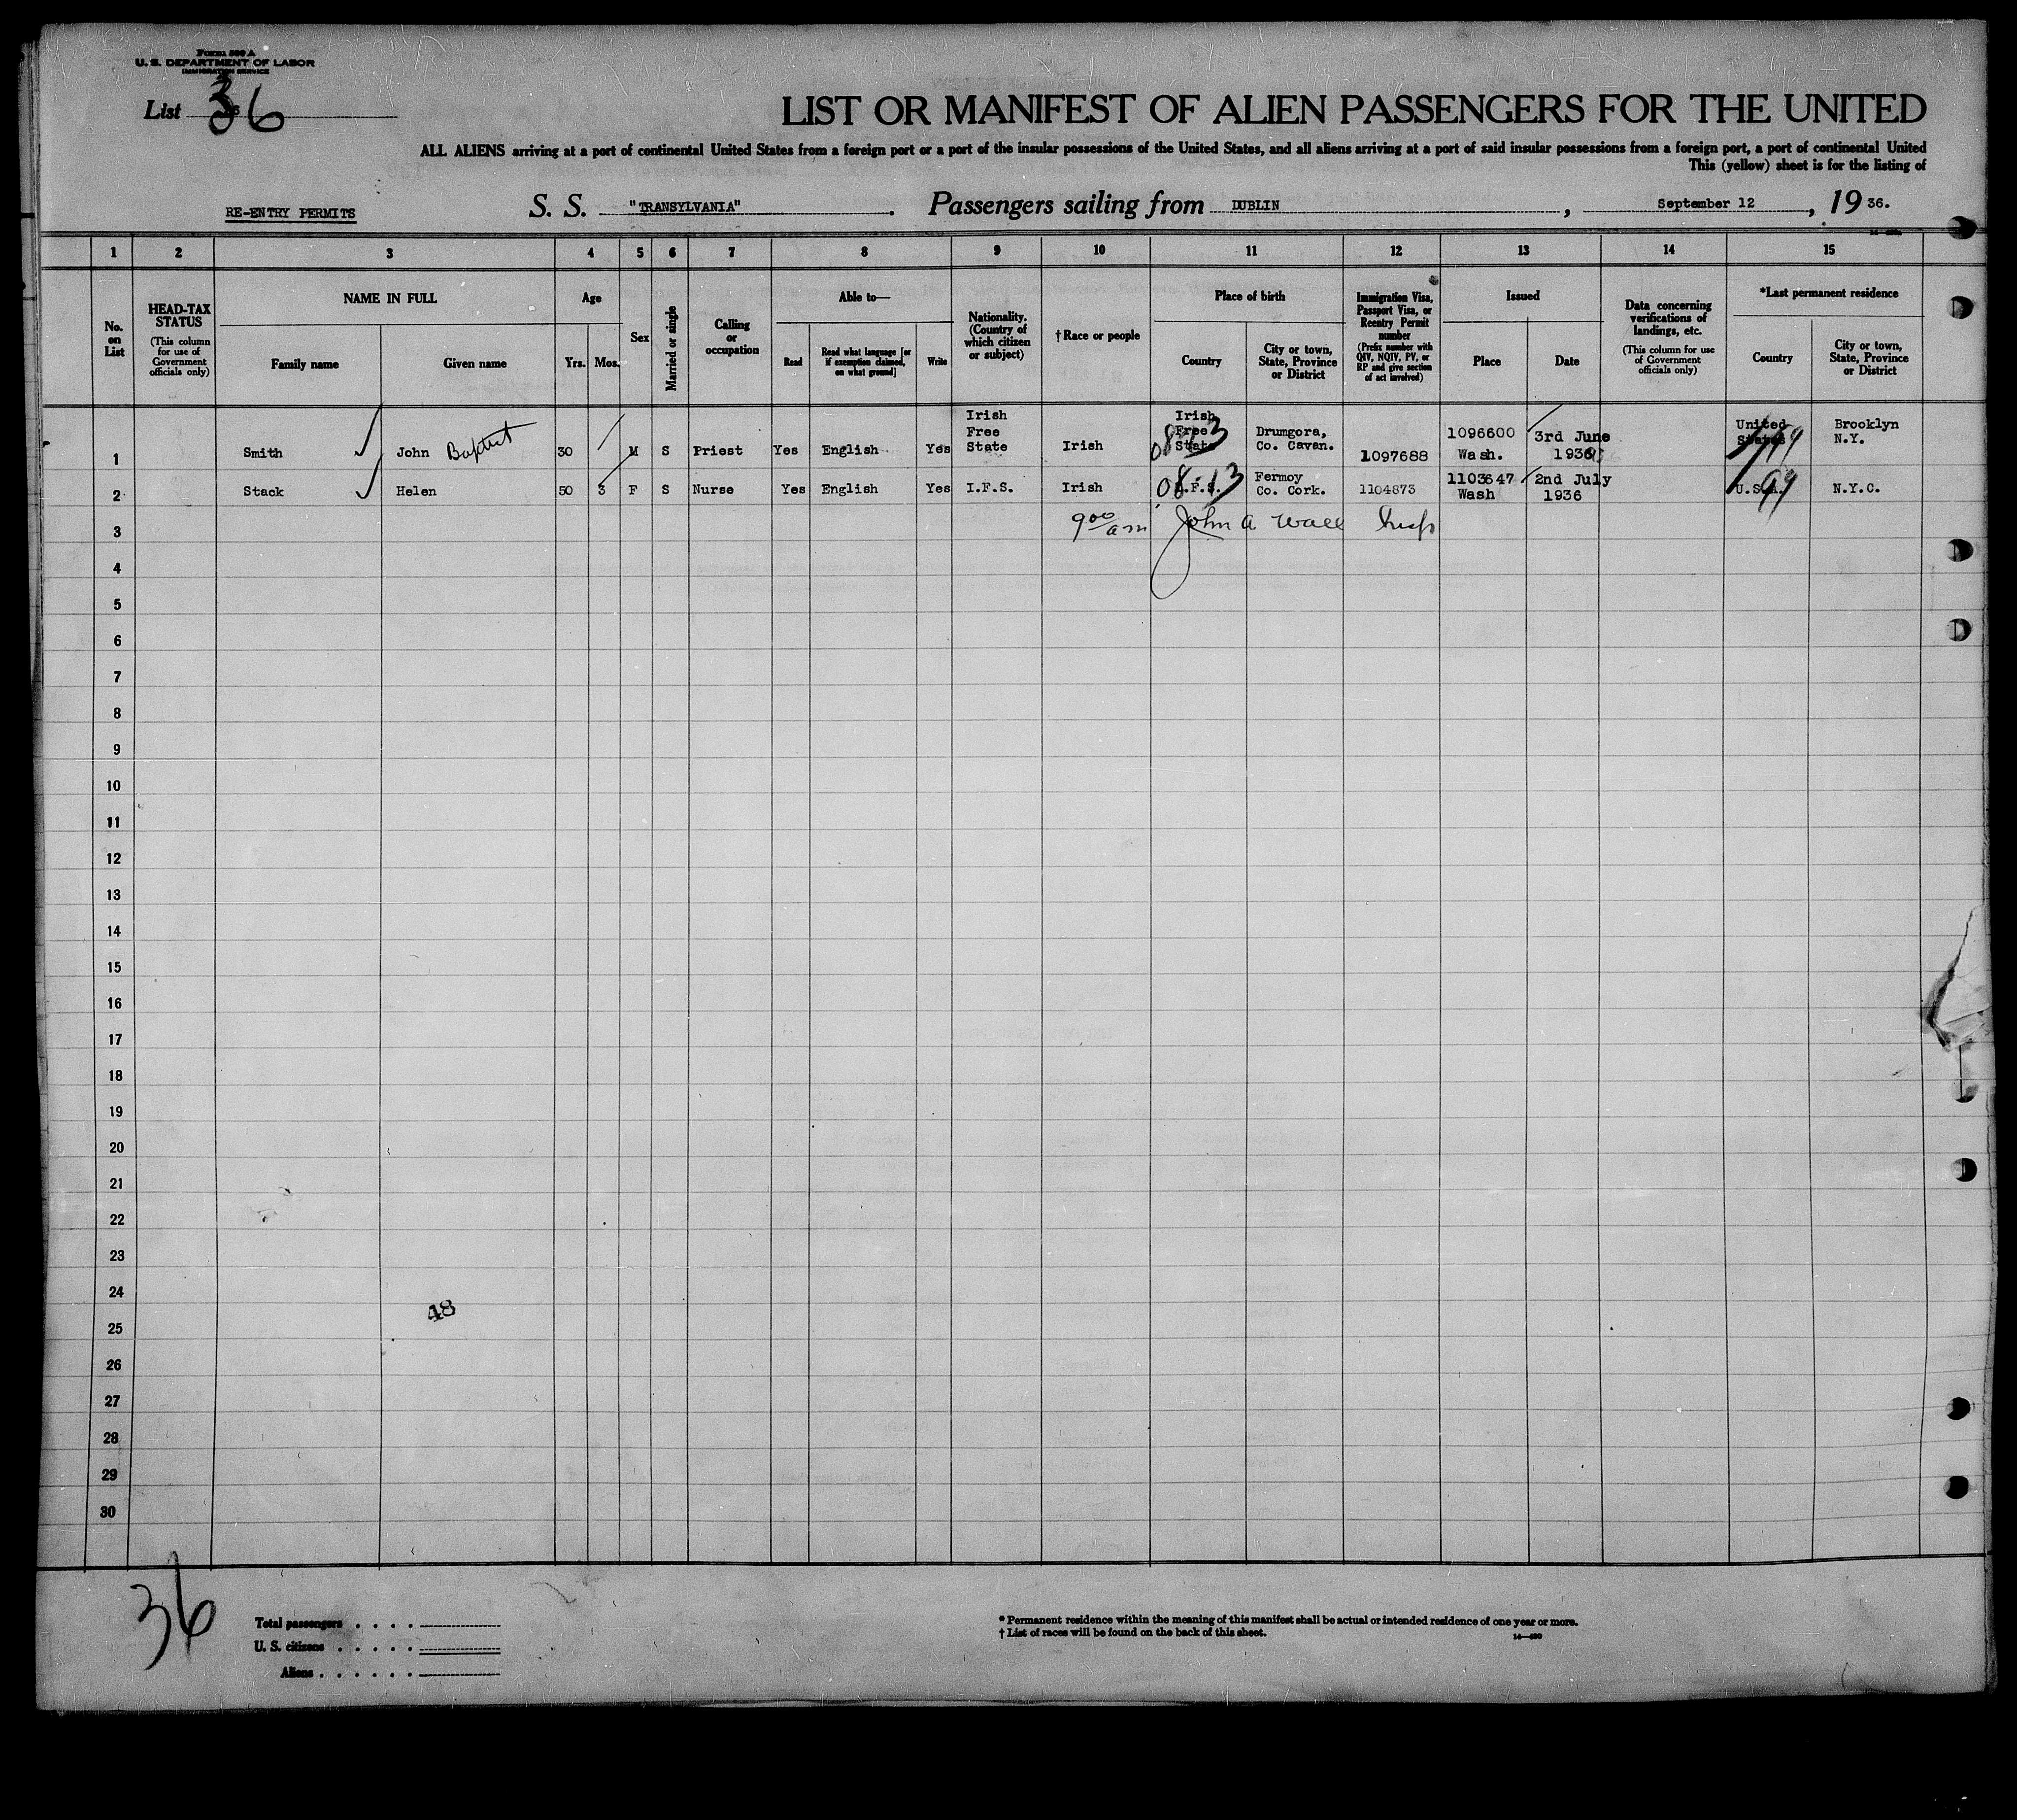 Form 500 A
U. S. DEPARTMENT OF LABOR
IMMIGRATION SERVICE
List 36
LIST OR MANIFEST OF ALIEN PASSENGERS FOR THE UNITED
ALL ALIENS arriving at a port of continental United States from a foreign port or a port of the insular possessions of the United States, and all aliens arriving at a port of said insular possessions from a foreign port, a port of continental United
This (yellow) sheet is for the listing of
RE-ENTRY PERMITS S. S. "TRANSYLVANIA". Passengers sailing from DUBLIN, September 12, 19 36.
1 2 3 4 5 6 7 8 9 10 11 12 13 14 15
No. on List
HEAD-TAX STATUS
(This column for use of Government officials only)
NAME IN FULL
Family name
Given name
Age
Yrs. Mos.
Sex
Married or single
Calling or occupation
Able to—
Read
Read what language [or if exemption claimed, on what ground]
Write
Nationality. (Country of which citizen or subject)
† Race or people
Place of birth
Country
City or town, State, Province or District
Immigration Visa, Passport Visa, or Reentry Permit number
(Prefix number with QIV, NQIV, PV, or RP and give section of act involved)
Issued
Place
Date
Data concerning verifications of landings, etc.
(This column for use of Government officials only)
*Last permanent residence
Country
City or town, State, Province or District
1 Smith John Baptist 30 M S Priest Yes English Yes Irish Free State Irish Irish Free State 08-13 Drumgora, Co. Cavan. 1097688 1096600 Wash. 3rd June 1936 United States 99 Brooklyn N.Y.
2 Stack Helen 50 3 F S Nurse Yes English Yes I.F.S. Irish I.F.S. 08-13 Fermoy Co. Cork. 1104873 1103647 Wash 2nd July 1936 U.S.A. 99 N.Y.C.
3 9 00 am John A Wall Insp
4
5
6
7
8
9
10
11
12
13
14
15
16
17
18
19
20
21
22
23
24
48
25
26
27
28
29
30
36
Total passengers . . . .
U. S. citizens . . . . .
Aliens . . . . . .
* Permanent residence within the meaning of this manifest shall be actual or intended residence of one year or more.
† List of races will be found on the back of this sheet.